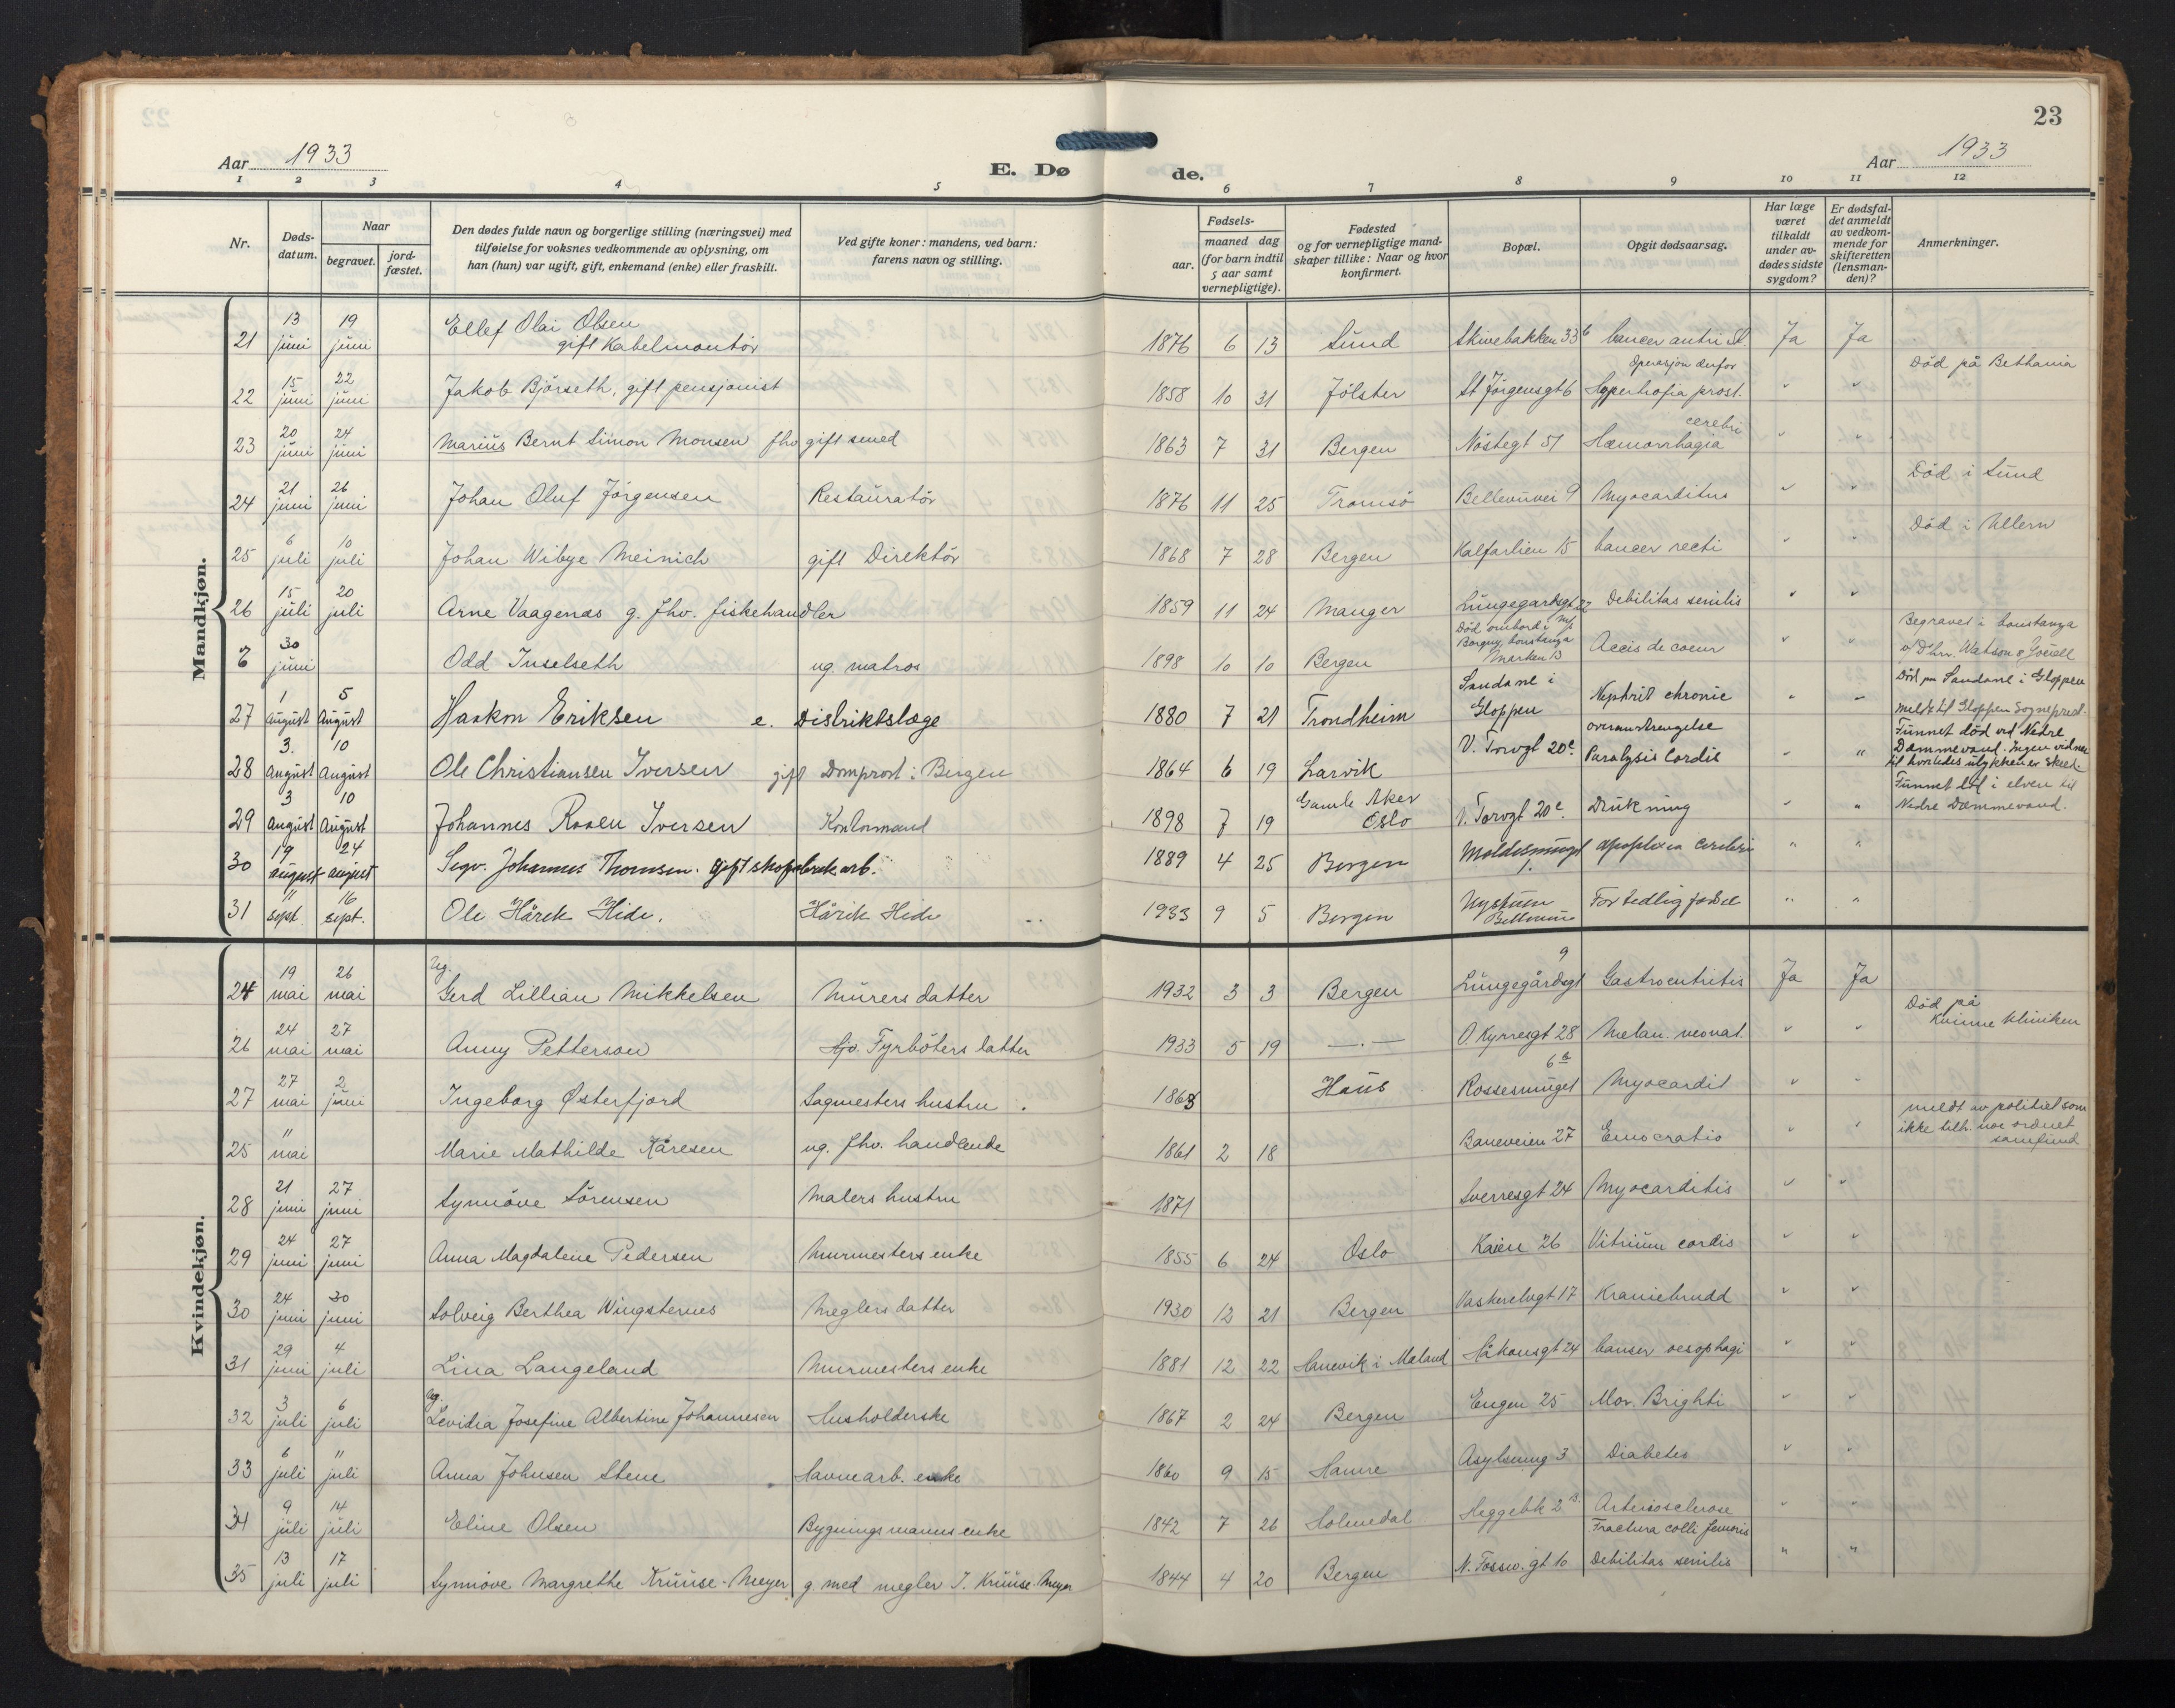 23
Aar 1933
E. Dø
de.
Aar 1933
1 2 3 4 5 6 7 8 9 10 11 12
Nr.
Døds-
datum.
Naar
begravet.
jord-
fæstet.
Den dødes fulde navn og borgerlige stilling (næringsvei) med
tilføielse for voksnes vedkommende av oplysning, om
han (hun) var ugift, gift, enkemand (enke) eller fraskilt.
Ved gifte koner: mandens, ved barn:
farens navn og stilling.
Fødsels-
aar.
maaned dag
(for barn indtil
5 aar samt
vernepligtige).
Fødested
og for vernepligtige mand-
skaper tillike: Naar og hvor
konfirmert.
Bopæl.
Opgit dødsaarsag.
Har læge
været
tilkaldt
under av-
dødes sidste
sygdom?
Er dødsfal-
det anmeldt
av vedkom-
mende for
skifteretten
(lensman-
den)?
Anmerkninger.
Mandkjøn.
21 13 juni 19 juni Ellef Olai Olsen
gift Kabelmontör 1876 6 13 Sund Skivebakken 33b Cancer antri Ja Ja
22 15 juni 22 juni Jakob Björseth, gift pensjonist 1858 10 31 Jölster St Jörgensgt 6 Operasjon derfor
Hypertrofia prost. " " Död på Bethania
23 20 juni 24 juni Marius Bernt Simon Monsen fhv gift smed 1863 7 31 Bergen Nöstegt 51 Hæmorrhagia cerebri " "
24 21 juni 26 juni Johan Oluf Jörgensen Restauratör 1876 11 25 Tromsö Bellevuevei 9 Myocarditus " " Död i Sund
25 6 juli 10 juli Johan Wibye Meinich gift Direktör 1868 7 28 Bergen Kalfarlien 15 Cancer recti " " Död i Ullern
26 15 juli 20 juli Arne Vaagenæs g. fhv. fiskehandler 1859 11 24 Manger Lungegardsgt 22 Debilitas senilis " "
30 juni Odd Inselseth ug. matros 1898 10 10 Bergen Död ombord i M/S
Borgny, Constanza
Marken 13 Accis de coeur " " Begravet i Constanza
v/ D'hrr. Watson & Youell
27 1 August 5 August Haakon Eriksen e. Distriktslæge 1880 7 21 Trondheim Sandane i
Gloppen Nephrit chronic " " Död paa Sandane i Gloppen
meldt til Gloppen Sognepred.
28 3. August 10 August Ole Christiansen Iversen gift Domprost i Bergen 1864 6 19 Larvik V. Torvgt 20c overanstrengelse
Paralysis Cordis " " Funnet död ved Nedre
Dammevand. Ingen vidner
til hvorledes ulykken er skeet.
29 3 August 10 August Johannes Raaen Iversen Kontormand 1898 7 19 Gamle Aker
Oslo V. Torvgt 20c. Drukning " " Funnet död i elven til
Nedre Dammevand.
30 19 august 24 august Sigv. Johannes Thomsen. gift skofabrik.arb. 1889 4 25 Bergen 1. apoplexia cerebri " "
31 11 sept. 16 sept. Ole Hårek Hide. Hårek Hide 1933 9 5 Bergen Bellevue For tidlig födsel " "
Kvindekjøn.
24 19 mai 26 mai Ug.
Gerd Lillian Mikkelsen Murers datter 1932 3 3 Bergen Lungegårdsgt 9 Gastroentritis Ja Ja
26 24 mai 27 mai Anny Petterson fhv. Fyrböters datter 1933 5 19 —.— O. Kyrresgt 28 Melan. neonat. " " Död på
Kvinne kliniken
27 27 mai 2 juni Ingeborg Østerfjord Sagmesters hustru. 1868 Haus Rossesmuget 6a Myocardit " "
25 11 mai Marie Mathilde Kåresen ug. fhv. handlende 1861 2 18 Baneveien 27 " " meldt av politiet som
ikke tilh. noe ordnet
samfund
28 21 juni 27 juni Synnöve Sörensen Malers hustru 1871 Sverresgt 24 Myocarditis " "
29 24 juni 27 juni Anna Magdalene Pedersen Murmesters enke 1855 6 24 Oslo Kaien 26 Vitrium cordis " "
30 24 juni 30 juni Solveig Berthea Wingsternes Meglers datter 1930 12 21 Bergen Vaskerelvgt 17 Kraniebrudd " "
31 29 juni 4 juli Lina Langeland Murmesters enke 1881 12 22 Hanevik i Håkonsgt 24 Canser oesophagi " "
32 3 juli 6 juli Ug.
Levidia Josefine Albertine Johannesen Husholderske 1867 2 24 Bergen Engen 25 Mor. Brighti " "
33 6 juli 11 juli Anna Johnsen Stene Havnearb. enke 1860 9 15 Hamre Asylsmug 3 Diabetes " "
34 9 juli 14 juli Eline Olsen Bygningsmanns enke 1842 7 26 Holmedal Heggebk 2B. Arteriosclerose
Fractura colli femoris " "
35 13 juli 17 juli Synnöve Margrethe Kruuse-Meyer g. med megler J. Kruuse-Meyer 1844 4 20 Bergen N. Fossw. gt 10 Debilitas senilis " "